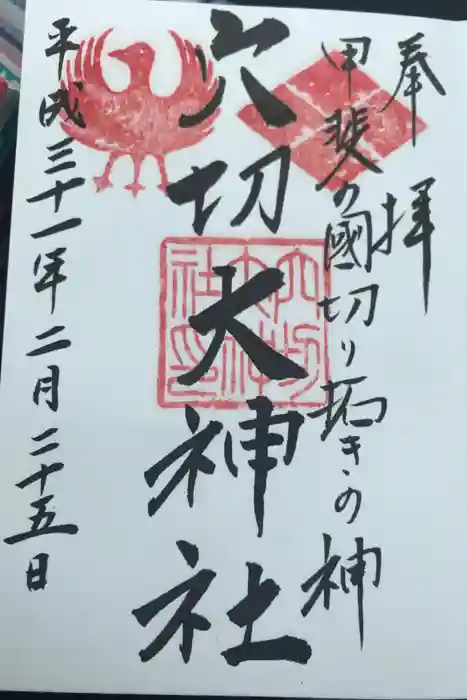 奉拝
甲斐の國切り拓きの神
穴切大神社
穴切
大神
社印
平成三十一年二月二十五日